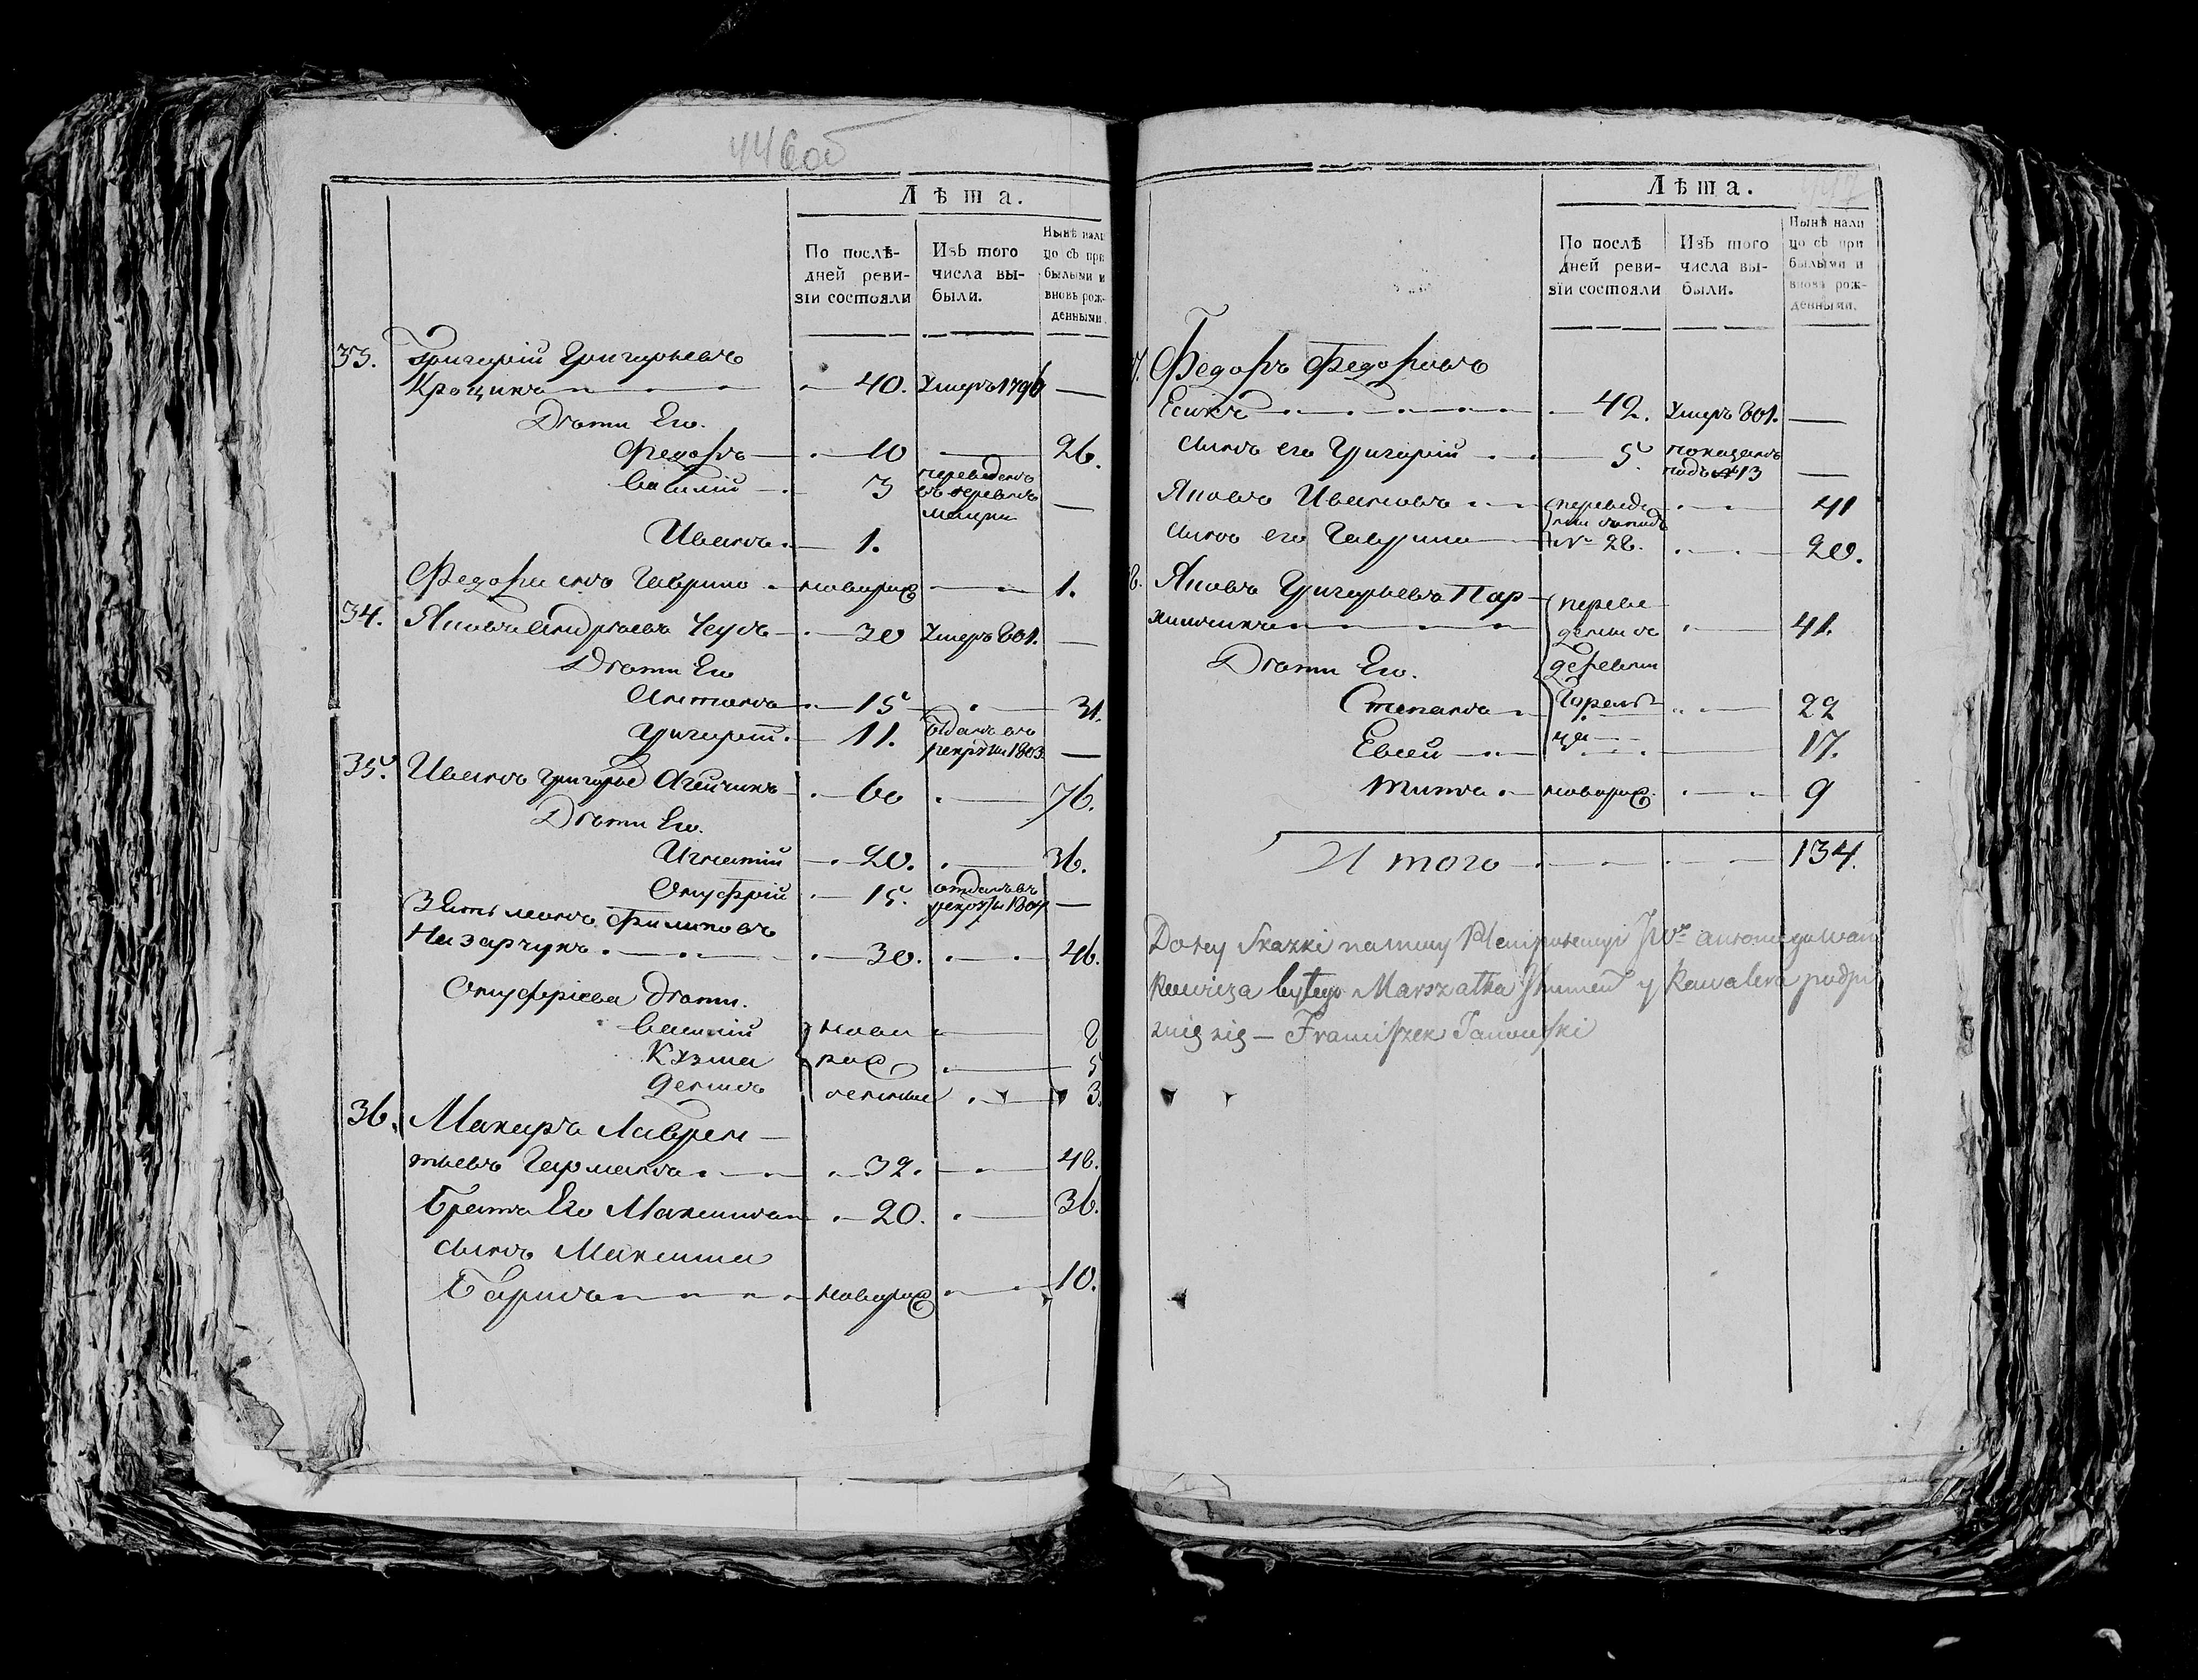 446об
Лѣта.
По послѣ-
дней реви-
зіи состояли
Изъ того
числа вы-
были.
Нынѣ нали
цо съ при
былыми и
вновь рож-
денными.
33. Григорій Григорьевъ
Крощикъ 40. Умеръ 1796 —
Дѣти Его.
Федоръ 10 — 26.
Василій 3 переведенъ
въ деревню
—
Иванъ 1.
Федора сынъ Гаврило новорож — 1.
34. Яковъ Андреевъ Чеусъ 30 Умеръ 801. —
Дѣти Его
Антонъ 15 31.
Григорій 11. отданъ въ
рекруты 1803 —
35. Иванъ Григорьев Агейчикъ 60 76.
Дѣти Его.
Игнатій 20. 36.
Онуфрій 15. отданъ въ
рекруты 1804 —
Зять Филиповъ
Назарчукъ 30. 46.
Онуфріева Дѣти.
Василій ново 8
Кузма рож 5
Демидъ денные 3.
36. Макаръ Лаврен-
тьевъ Германъ 32. 48.
Братъ Его Максимъ 20. 36.
сынъ Максима
Барисъ новорож 10.
447
Лѣта.
По послѣ
дней реви-
зіи состояли
Изъ того
числа вы-
были.
Нынѣ нали
цо съ при
былыми и
вновь рож-
денными.
7. Федоръ Федоровъ
Есикъ 42. Умеръ 801. —
сынъ его Григорій 5. показанъ
подъ № 13 —
Яковъ Ивановъ переведе 41
сынъ его Гаврило № 28. 20.
8. Яковъ Григорьевъ Пар-
химчикъ переве 41.
дены съ
Дѣти Его. деревни
Степанъ Горель 22
Евсей 17.
Титъ новорож. 9
Итого 134.
Do tey Skazki na mocy Plenipotencyi JWo Antoniego Wań
kowicza byłego Marszałka Ihumeń y Kawalera podpi
suię się — Franciszek Janowski